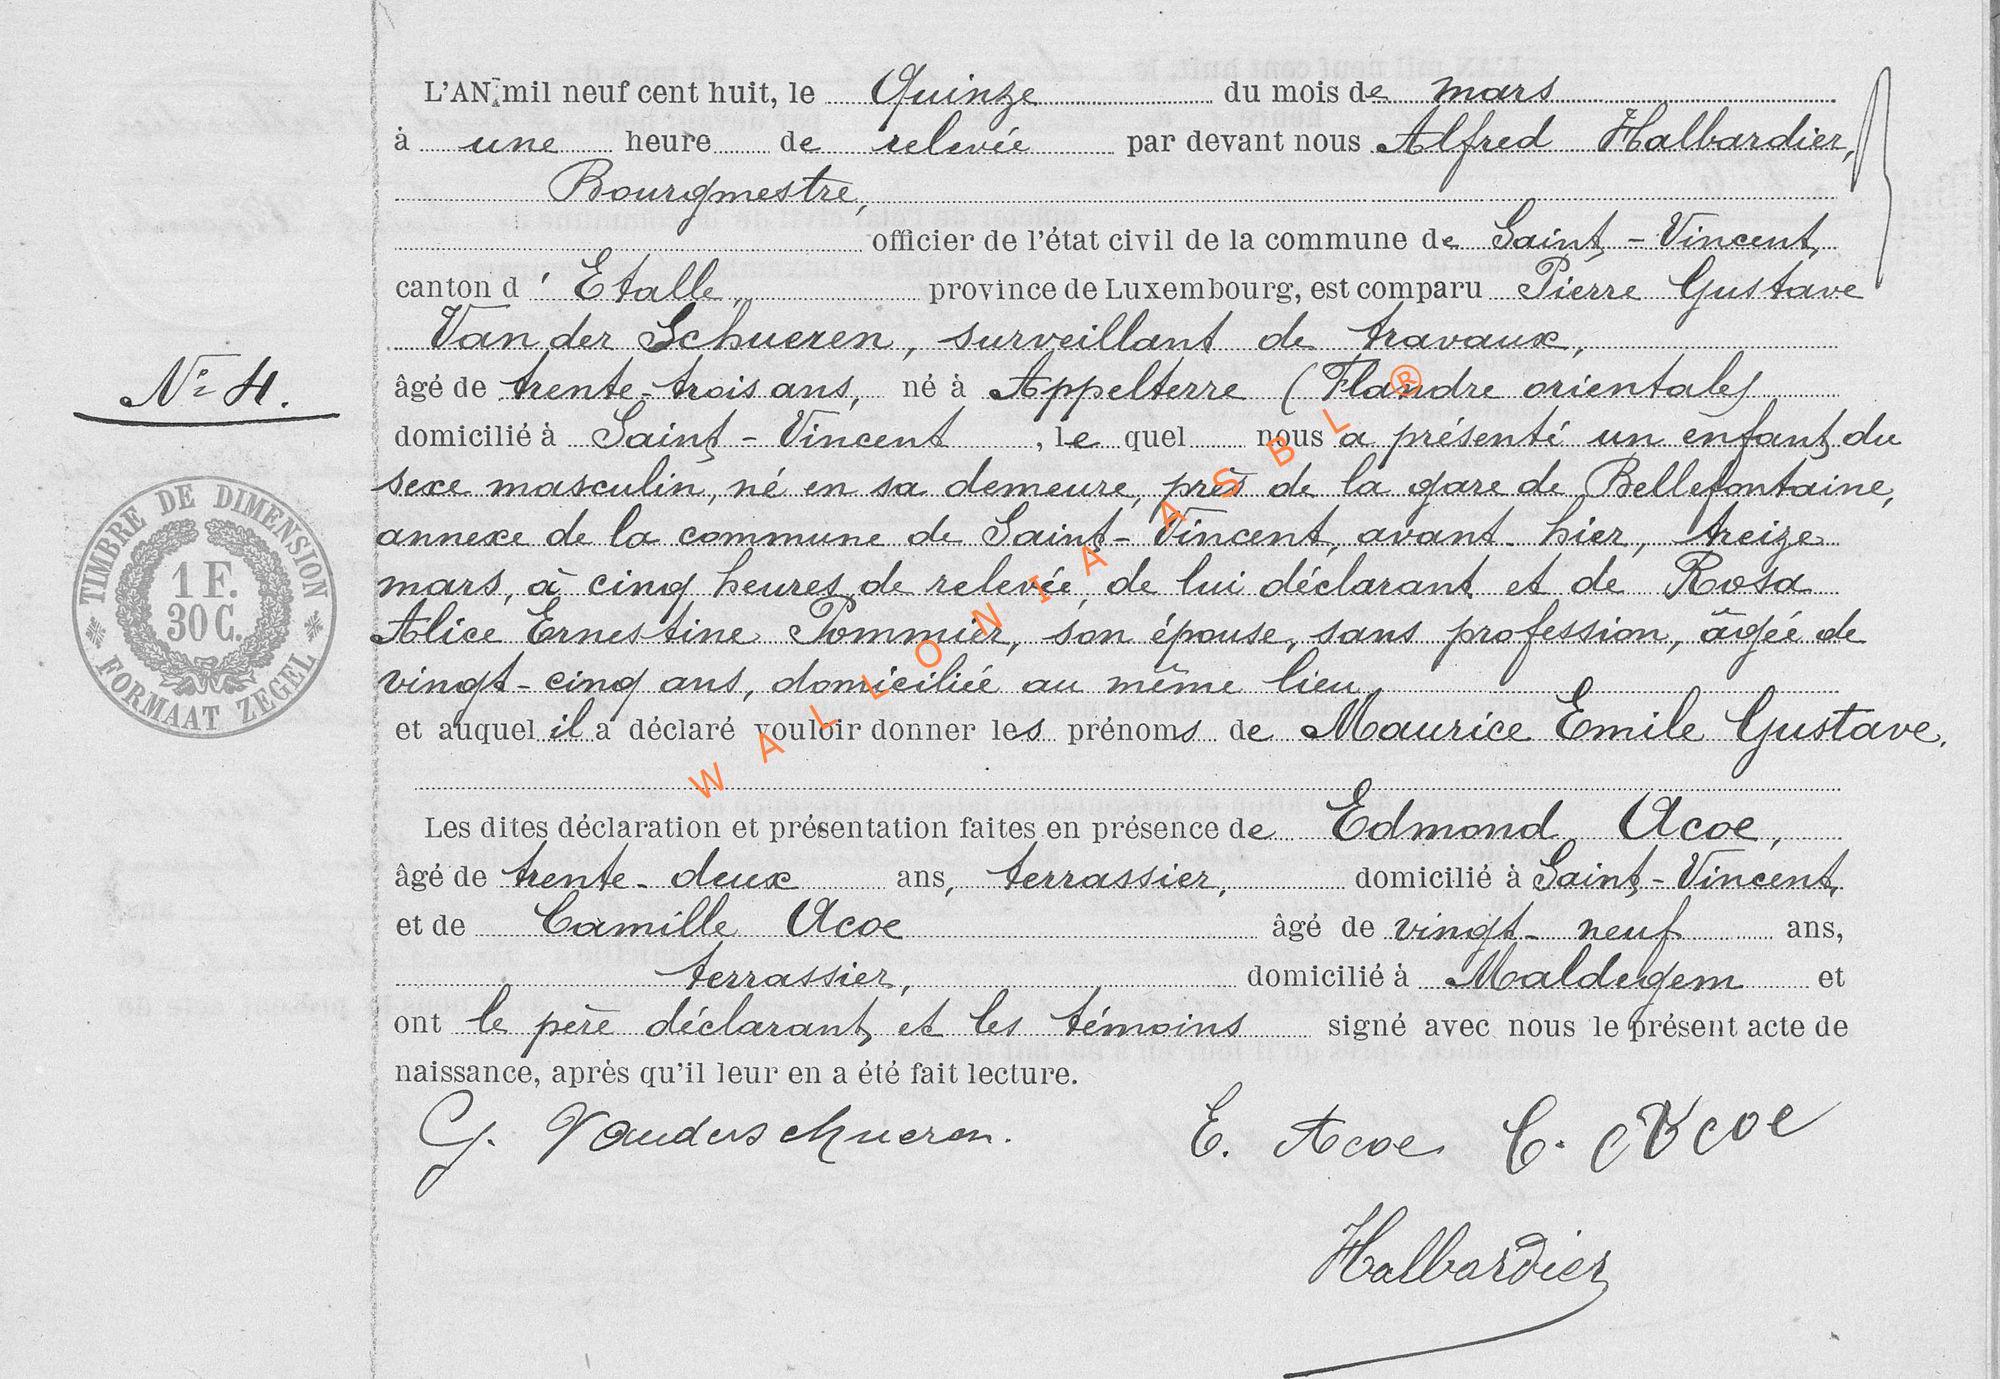 L'AN mil neuf cent huit, le Quinze du mois de mars
à une heure de relevée par devant nous Alfred Halbardier,
Bourgmestre,
officier de l'état civil de la commune de Saint-Vincent,
canton d'Etalle, province de Luxembourg, est comparu Pierre Gustave
Van der Schueren, surveillant de travaux,
âgé de trente-trois ans, né à Appelterre (Flandre orientale)
domicilié à Saint-Vincent, lequel nous a présenté un enfant du
sexe masculin, né en sa demeure, près de la gare de Bellefontaine,
annexe de la commune de Saint-Vincent, avant-hier, treize
mars, à cinq heures de relevée, de lui déclarant et de Rosa
Alice Ernestine Pommier, son épouse, sans profession, âgée de
vingt-cinq ans, domiciliée au même lieu,
et auquel il a déclaré vouloir donner les prénoms de Maurice Emile Gustave.
Les dites déclaration et présentation faites en présence de Edmond Acoe,
âgé de trente-deux ans, terrassier, domicilié à Saint-Vincent,
et de Camille Acoe âgé de vingt-neuf ans,
terrassier, domicilié à Maldegem et
ont le père déclarant et les témoins signé avec nous le présent acte de
naissance, après qu'il leur en a été fait lecture.
G. Vanderschueren. E. Acoe C. Acoe
Halbardier
N° 4.
TIMBRE DE DIMENSION
1 F.
30 C.
FORMAAT ZEGEL
WALLONIA ASBL ®